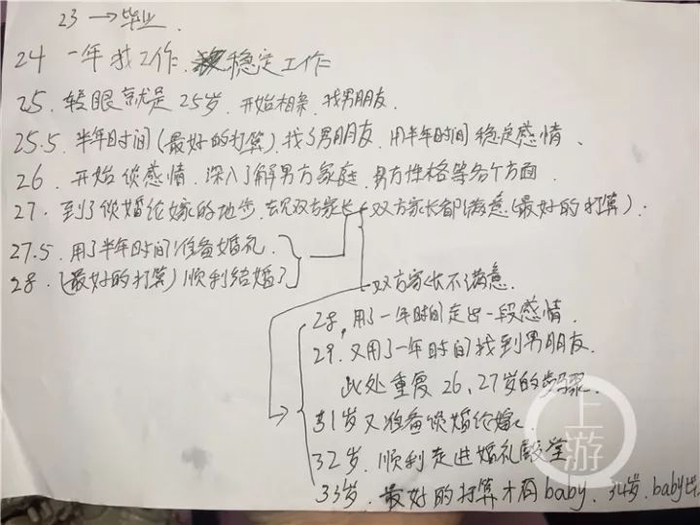 23 → 毕业.
24 一年找工作. 稳定工作
25. 转眼就是25岁. 开始相亲. 找男朋友.
25.5. 半年时间(最好的打算). 找了男朋友. 用半年时间稳定感情、
26. 开始谈感情. 深入了解男方家庭. 男方性格等各个方面.
27. 到了谈婚论嫁的地步. 去见双方家长 → 双方家长都满意(最好的打算).
27.5. 用了半年时间准备婚礼.
28. (最好的打算)顺利结婚了
双方家长不满意.
28. 用了一年时间走出一段感情.
29. 又用了一年时间找到男朋友.
此处重复26、27岁的步骤.
31岁又准备谈婚论嫁.
32岁. 顺利走进婚礼殿堂
33岁. 最好的打算才有baby. 34岁. baby出
上游